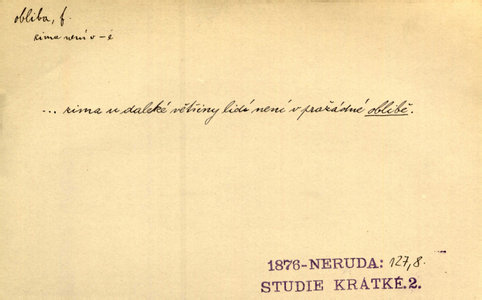 obliba, f.
zima není v -ě
... zima u daleké většiny lidí není v pražádné oblibě.
1876-NERUDA: 127,8.
STUDIE KRÁTKÉ.2.